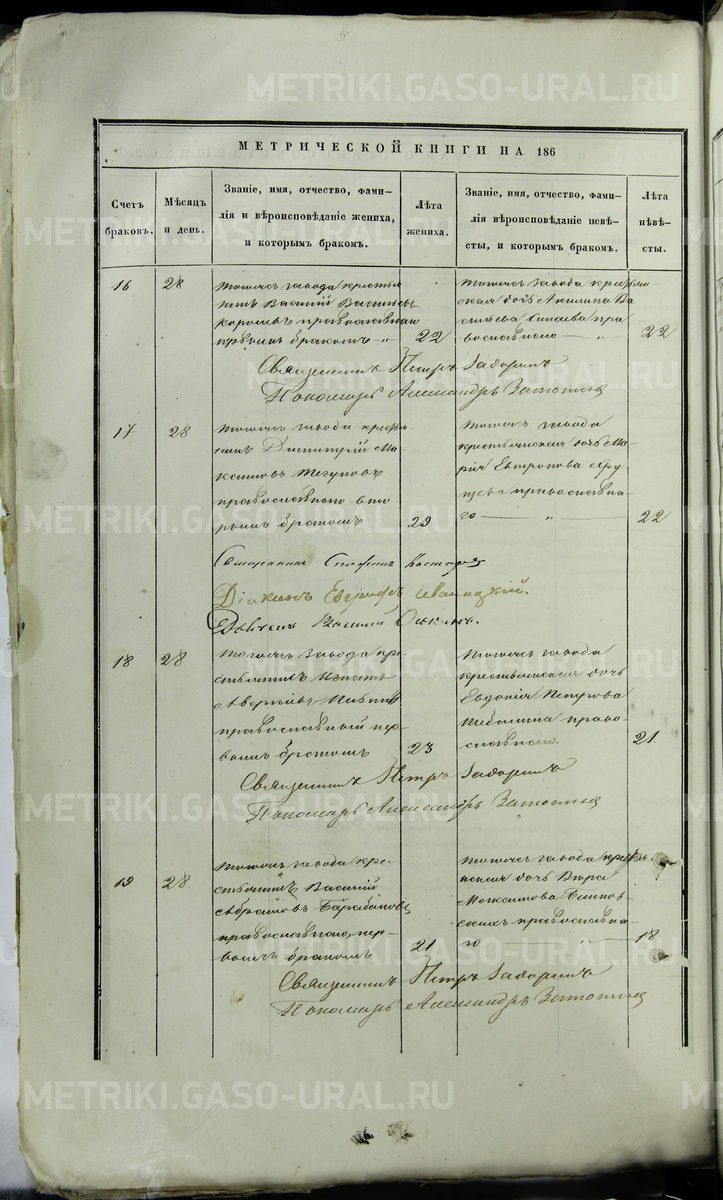 METRIKI.GASO-URAL.RU
МЕТРИЧЕСКОЙ КНИГИ НА 186
Счетъ браковъ.
Мѣсяцъ и день.
Званіе, имя, отчество, фами-
лія и вѣроисповѣданіе жениха,
и которымъ бракомъ.
Лѣта жениха.
Званіе, имя, отчество, фами-
лія вѣроисповѣданіе невѣ-
сты, и которымъ бракомъ.
Лѣта невѣ-
сты.
16
28
тогожъ завода крестья-
нинъ Василій Васильевъ
православнаго
первымъ бракомъ
22
тогожъ завода крестьян-
ская дочь Акилина Ва
сильева пра
вославнаго
22
Священникъ Петръ
Пономарь Александръ
17
28
тогожъ завода кресть
нинъ Димитрій Ма
ксимовъ
православнаго вто
рымъ бракомъ
29
тогожъ завода
крестьянская дочь Ма
рія Евтропова
православна
го
22
Священникъ
Діаконъ Евграфъ
Василій
18
28
тогожъ завода кре
стьянинъ
Аверкіевъ
православный пер
вымъ бракомъ
23
тогожъ завода
крестьянская дочь
Евдокія Петрова
право
славнаго.
21
Священникъ Петръ
Пономарь Александръ
19
28
тогожъ завода кре
стьянинъ Василій
Абрамовъ Барабановъ
православнаго, пер
вымъ бракомъ
21
тогожъ завода крестья
нская дочь Вѣра
Максимова
православна
го
18
Священникъ Петръ
Пономарь Александръ